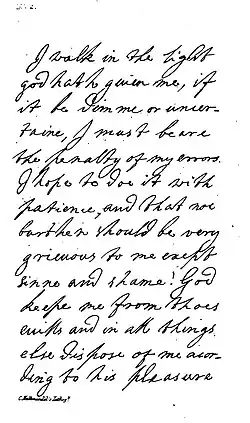 I walk in the light
god hath given me, if
it be dimme or uncer-
taine, I must beare
the penalty of my errors.
I hope to doe it with
patience, and that noe
burthen should be very
grievous to me except
sinne and shame! God
keepe me from thoes
evills and in all things
else dispose of me acor-
ding to his pleasure